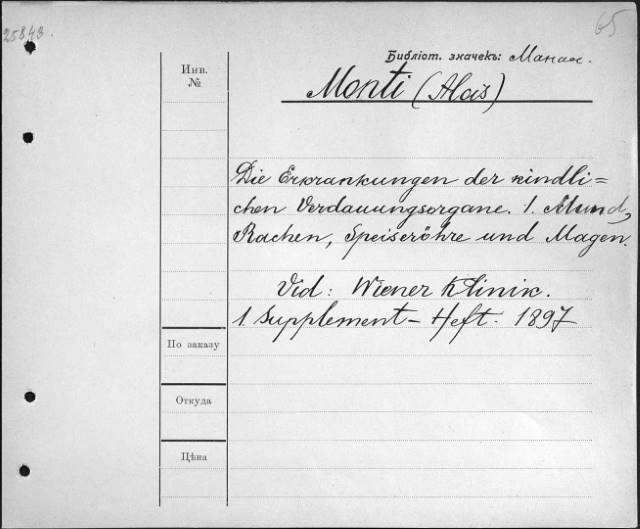 25843.
65
Библіот. значекъ: Манах.
Инв.
№
Monti (Alois)
Die Erkrankungen der kindli=
chen Verdauungsorgane. 1. Mund,
Rachen, Speiseröhre und Magen.
Vid: Wiener Klinik.
1 Supplement - Heft. 1897
По заказу
Откуда
Цѣна